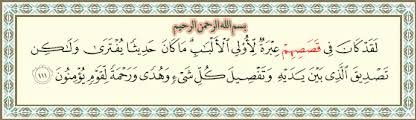 بسم الله الرحمن الرحيم
لَقَدْ كَانَ فِى قَصَصِهِمْ عِبْرَةٌ لِّأُو۟لِى ٱلْأَلْبَٰبِ مَا كَانَ حَدِيثًا يُفْتَرَىٰ وَلَٰكِن
تَصْدِيقَ ٱلَّذِى بَيْنَ يَدَيْهِ وَتَفْصِيلَ كُلِّ شَىْءٍ وَهُدًى وَرَحْمَةً لِّقَوْمٍ يُؤْمِنُونَ ١١١